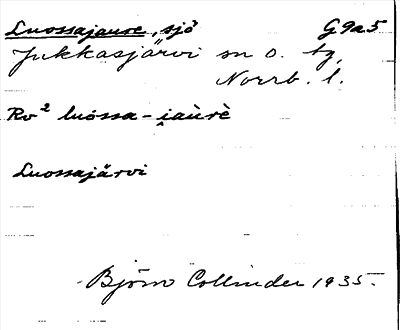 Luossajaure, sjö G9a5
Jukkasjärvi sn o. tg,
Norrb. l.
Rv² luossa-i̯au̇rè
Luossajärvi
Björn Collinder 1935.